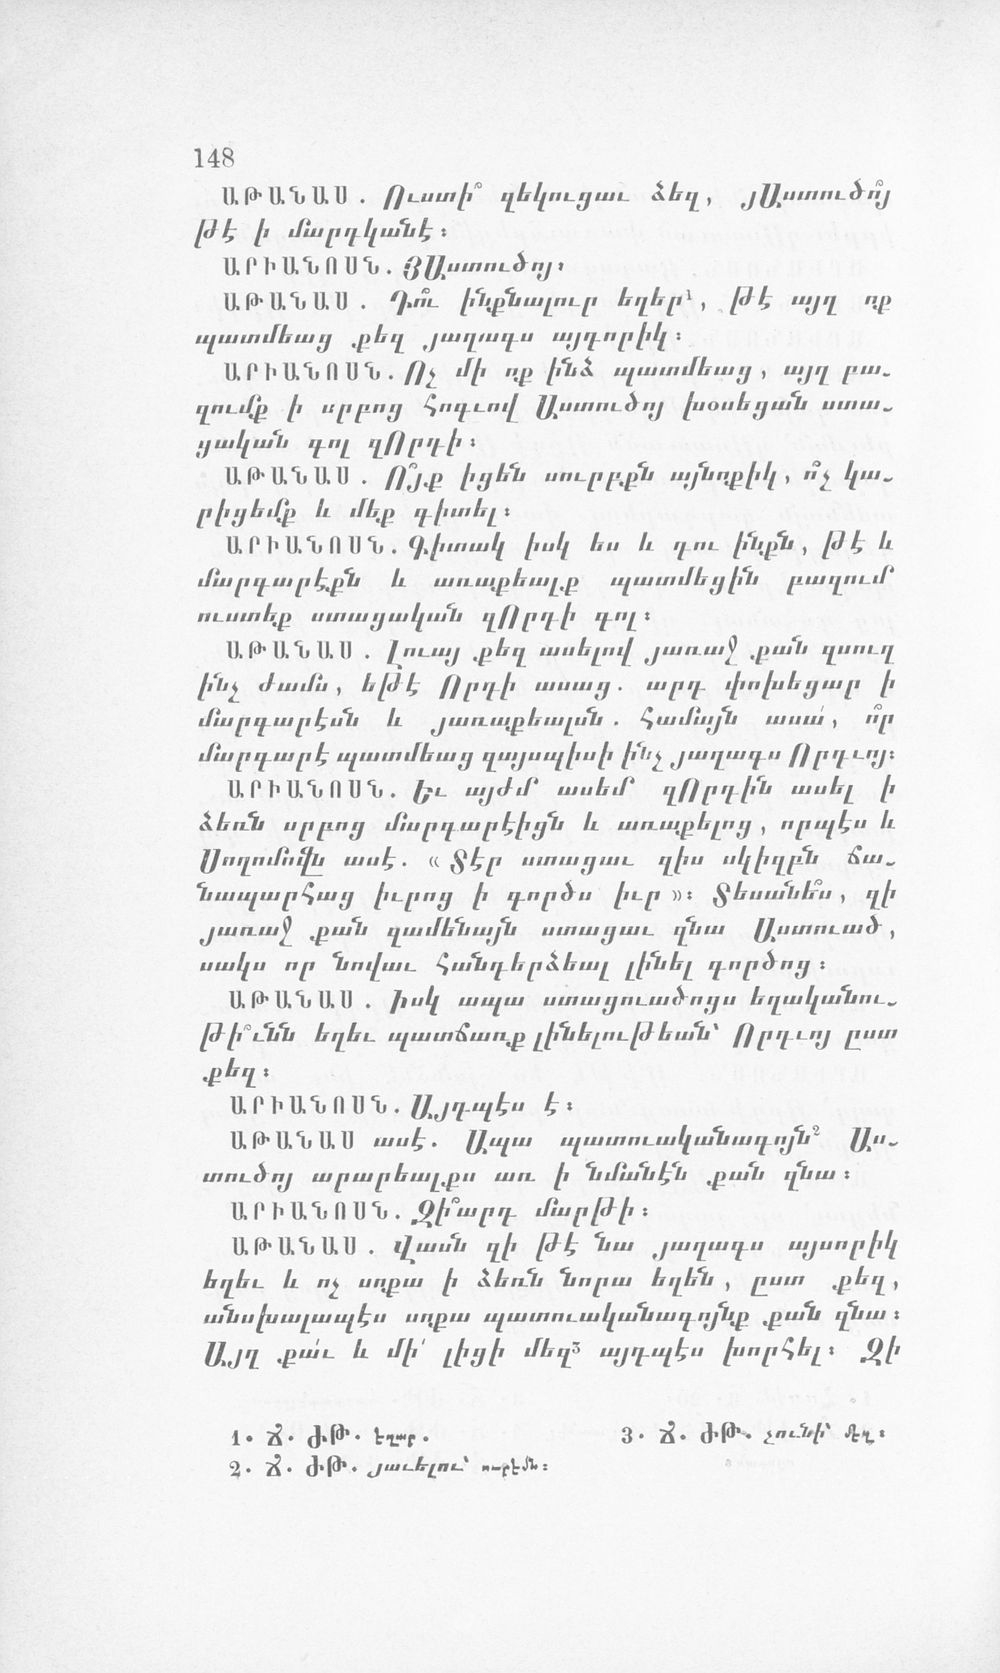 148
ԱԹԱՆԱՍ. Ուստի՞ զեկուցաւ ձեզ, յԱստուծո՞յ
թէ ի մարդկանէ:
ԱՐԻԱՆՈՍՆ. ՅԱստուծոյ:
ԱԹԱՆԱՍ. Դո՞ւ ինքնալուր եղեր¹, թէ այղ ոք
պատմեաց քեզ յաղագս այդորիկ:
ԱՐԻԱՆՈՍՆ. Ոչ մի ոք ինձ պատմեաց, այղ բա-
զումք ի սրբոց Հոգւով Աստուծոյ խօսեցան ստա-
ցական գոլ զՈրդի:
ԱԹԱՆԱՍ. Ո՞յք իցեն սուրբքն այնոքիկ, ո՞չ կա-
րիցեմք և մեք գիտել:
ԱՐԻԱՆՈՍՆ. Գիտակ իսկ ես և դու ինքն, թէ և
մարգարէքն և առաքեալք պատմեցին բազում
ուստեք ստացական զՈրդի գոլ:
ԱԹԱՆԱՍ. Լուայ քեզ ասելով յառաջ քան զսուղ
ինչ ժամս, եթէ Որդի ասաց. արդ փոխեցար ի
մարգարէսն և յառաքեալսն. համայն ասա՛, ո՞ր
մարգարէ պատմեաց զայսպիսի ինչ յաղագս Որդւոյ:
ԱՐԻԱՆՈՍՆ. Եւ այժմ ասեմ զՈրդին ասել ի
ձեռն սրբոց մարգարէիցն և առաքելոց, որպէս և
Սողոմովն ասէ. « Տէր ստացաւ զիս սկիզբն ճա-
նապարհաց իւրոց ի գործս իւր »: Տեսանե՞ս, զի
յառաջ քան զամենայն ստացաւ զնա Աստուած,
սակս որ նովաւ հանդերձեալ լինել գործոց:
ԱԹԱՆԱՍ. Իսկ ապա ստացուածոցս եղականու-
թի՞ւնն եղեւ պատճառք լինելութեան՝ Որդւոյ ըստ
քեզ:
ԱՐԻԱՆՈՍՆ. Այդպէս է:
ԱԹԱՆԱՍ ասէ. Ապա պատուականագոյն² Աս-
տուծոյ արարեալքս առ ի նմանէն քան զնա:
ԱՐԻԱՆՈՍՆ. Զի՞արդ մարթի:
ԱԹԱՆԱՍ. Վասն զի թէ նա յաղագս այսորիկ
եղեւ և ոչ սոքա ի ձեռն նորա եղեն, ըստ քեզ,
անսխալապէս սոքա պատուականագոյնք քան զնա:
Այղ քա՛ւ և մի՛ լիցի մեզ³ այդպէս խորհել: Զի
1. Ճ. ԺԹ. էղար.
2. Ճ. ԺԹ. յաւելու՝ ուրէմն:
3. Ճ. ԺԹ. չունի՝ մեզ: